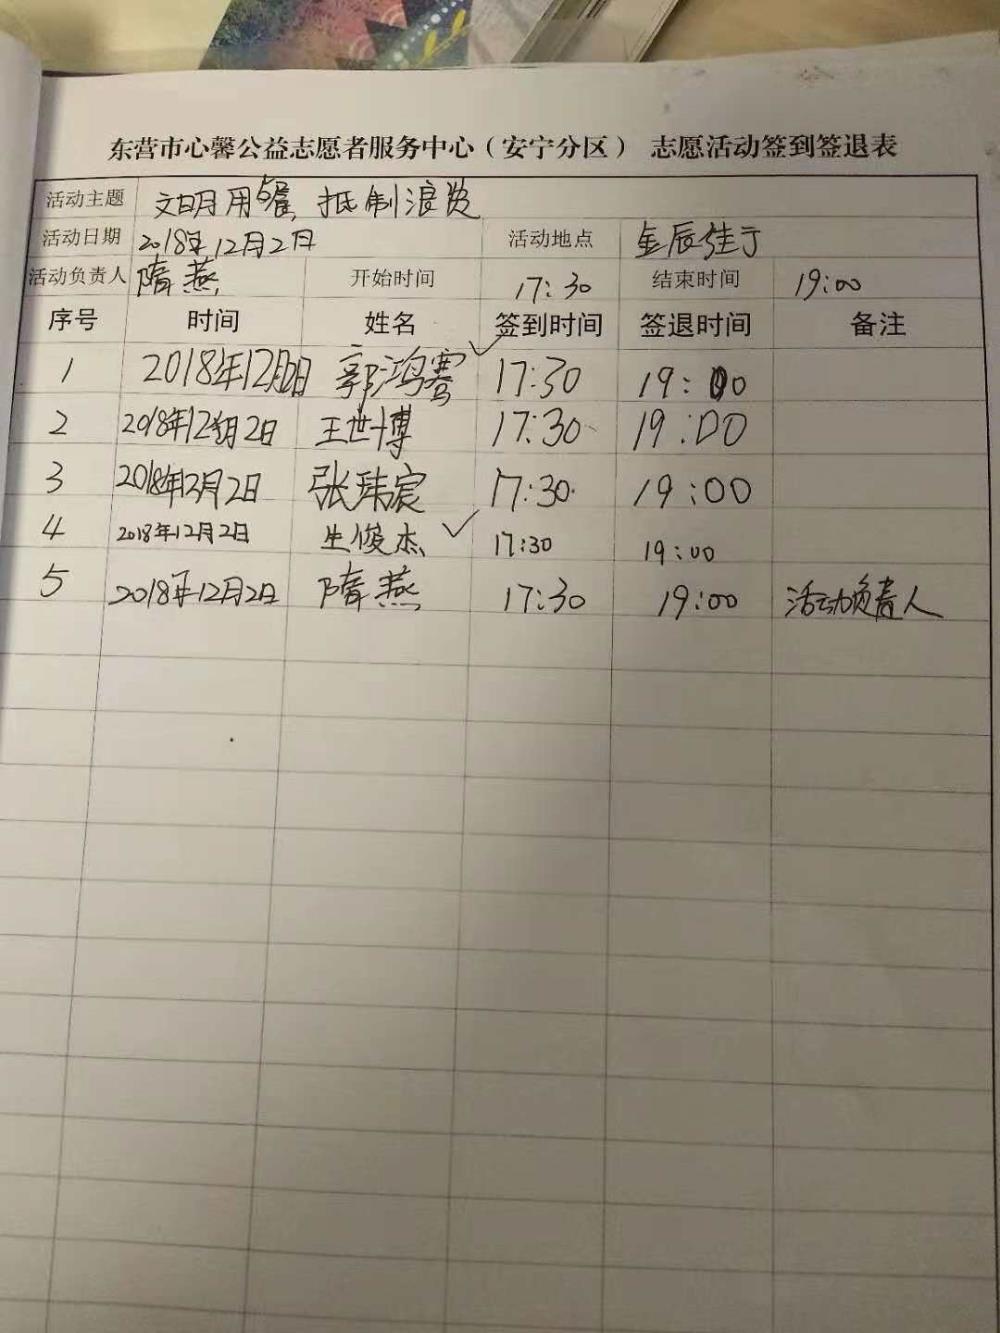 东营市心馨公益志愿者服务中心（安宁分区） 志愿活动签到签退表
活动主题 文明用餐，抵制浪费
活动日期 2018年12月2日 活动地点 金辰佳宁
活动负责人 隋燕 开始时间 17:30 结束时间 19:00
序号 时间 姓名 签到时间 签退时间 备注
1 2018年12月2日 郭鸿骞 17:30 19:00
2 2018年12月2日 王世博 17:30 19:00
3 2018年12月2日 张玮宸 17:30 19:00
4 2018年12月2日 生俊杰 17:30 19:00
5 2018年12月2日 隋燕 17:30 19:00 活动负责人